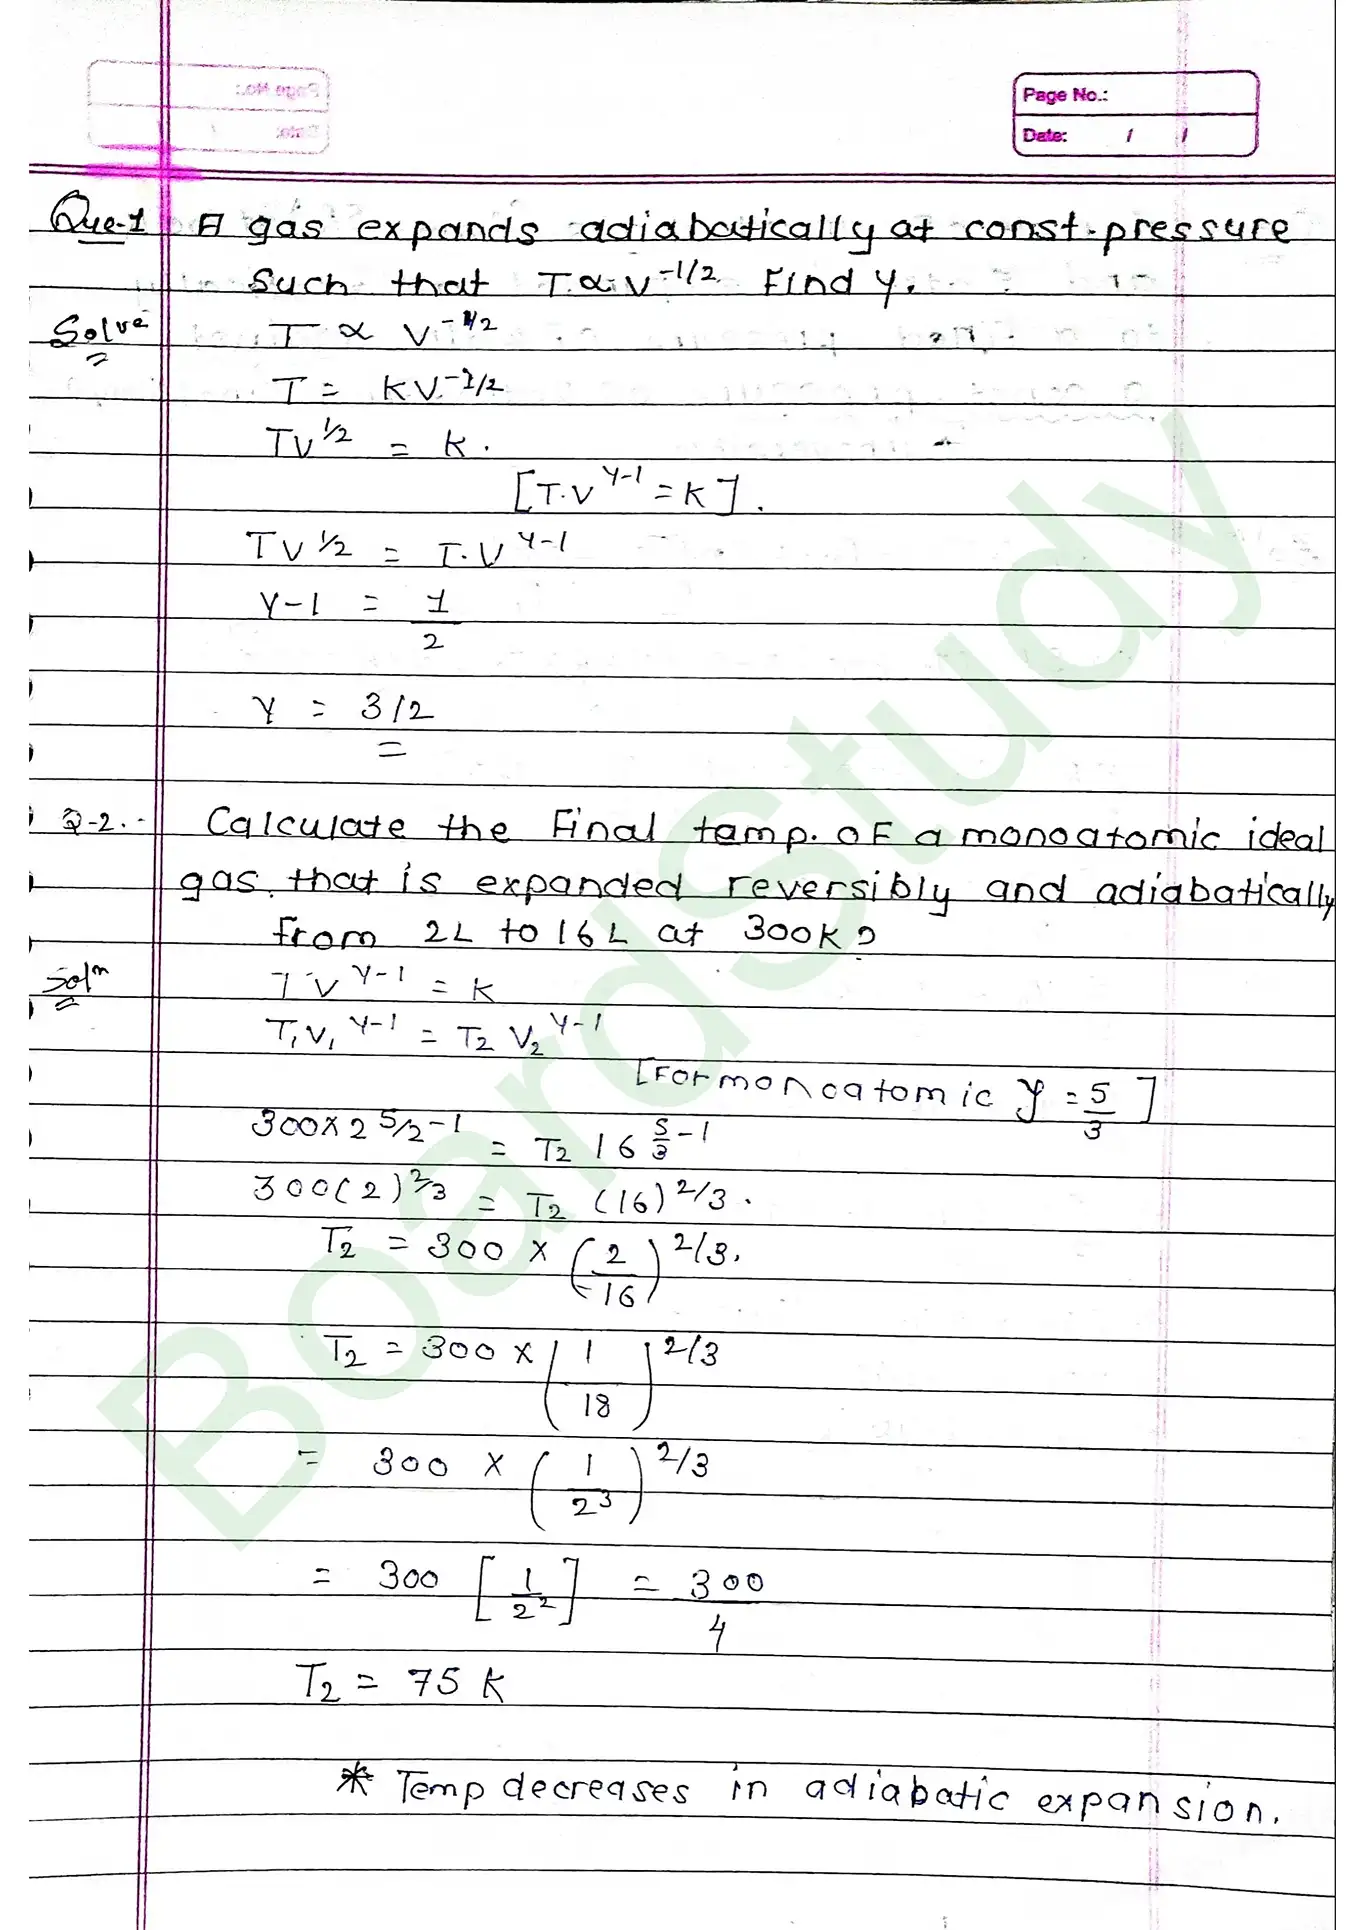 Page No.:
Date: / /
Que-1 A gas expands adiabatically at const. pressure
such that T ∝ V^-1/2 Find γ.
Solve T ∝ V^-1/2
T = KV^-1/2
TV^1/2 = K.
[T.V^γ-1 = K].
TV^1/2 = T.V^γ-1
γ-1 = 1/2
γ = 3/2
Q-2. Calculate the Final temp. of a monoatomic ideal
gas. that is expanded reversibly and adiabatically
from 2L to 16L at 300K?
Solⁿ T V^γ-1 = K
T₁V₁^γ-1 = T₂ V₂^γ-1
[For monoatomic γ = 5/3]
300×2^5/2-1 = T₂ 16^5/3-1
300(2)^2/3 = T₂ (16)^2/3.
T₂ = 300 × (2/16)^2/3.
T₂ = 300 × (1/18)^2/3
= 300 × (1/2³)^2/3
= 300 [1/2²] = 300/4
T₂ = 75 K
* Temp decreases in adiabatic expansion.
BoardStudy